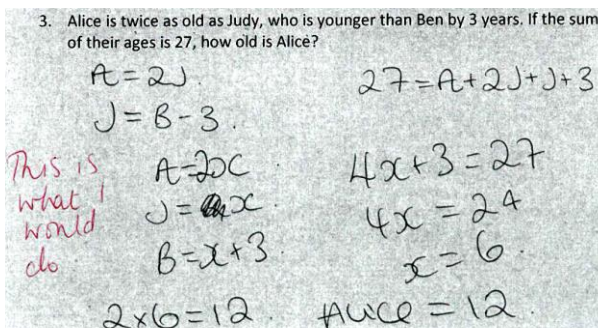 3. Alice is twice as old as Judy, who is younger than Ben by 3 years. If the sum
of their ages is 27, how old is Alice?
A = 2J.
J = B - 3.
27 = A + 2J + J + 3
This is
what I
would
do
A = 2x
J = x
B = x + 3
4x + 3 = 27
4x = 24
x = 6.
2 x 6 = 12.
Alice = 12